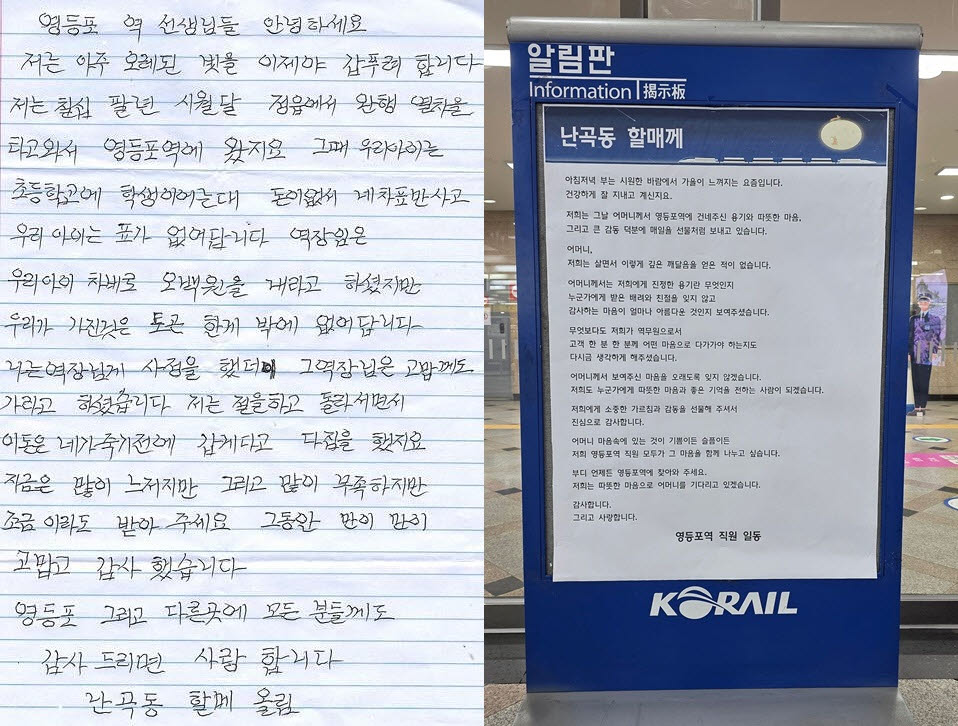 영등포 역 선생님들 안녕하세요
저는 아주 오래된 빛을 이제야 갑푸려 합니다
저는 칠십 팔련 시월달 정읍에서 완행 열차을
타고와서 영등포역에 왔지요 그때 우리아이는
초등학고에 학생이어는대 돈이없서 네차표만사고
우리 아이는 표가 없어답니다 역장임은
우리아이 차비로 오백원을 내라고 하셨지만
우리가 가진것은 토큰 한게 밖에 없어답니다
나는역장님게 사정을 했더니 그역장님은 고맙께도
가라고 하셨습니다 저는 절을하고 돌라서면서
이돈은 네가죽기전에 갑게다고 다짐을 했지요
지금은 많이 느저지만 그리고 많이 부족하지만
조금 이라도 받아 주세요 그동안 만이 만이
고맙고 감사 했습니다
영등포 그리고 다른곳에 모든 분들께도
감사 드리면 사랑 합니다
난곡동 할메 올림
알림판
Information 揭示板
난곡동 할매께
아침저녁 부는 시원한 바람에서 가을이 느껴지는 요즘입니다.
건강하게 잘 지내고 계신지요.
저희는 그날 어머니께서 영등포역에 건네주신 용기와 따뜻한 마음,
그리고 큰 감동 덕분에 매일을 선물처럼 보내고 있습니다.
어머니,
저희는 살면서 이렇게 깊은 깨달음을 얻은 적이 없습니다.
어머니께서는 저희에게 진정한 용기란 무엇인지
누군가에게 받은 배려와 친절을 잊지 않고
감사하는 마음이 얼마나 아름다운 것인지 보여주셨습니다.
무엇보다도 저희가 역무원으로서
고객 한 분 한 분께 어떤 마음으로 다가가야 하는지도
다시금 생각하게 해주셨습니다.
어머니께서 보여주신 마음을 오래도록 잊지 않겠습니다.
저희도 누군가에게 따뜻한 마음과 좋은 기억을 전하는 사람이 되겠습니다.
저희에게 소중한 가르침과 감동을 선물해 주셔서
진심으로 감사합니다.
어머니 마음속에 있는 것이 기쁨이든 슬픔이든
저희 영등포역 직원 모두가 그 마음을 함께 나누고 싶습니다.
부디 언제든 영등포역에 찾아와 주세요.
저희는 따뜻한 마음으로 어머니를 기다리고 있겠습니다.
감사합니다.
그리고 사랑합니다.
영등포역 직원 일동
KORAIL